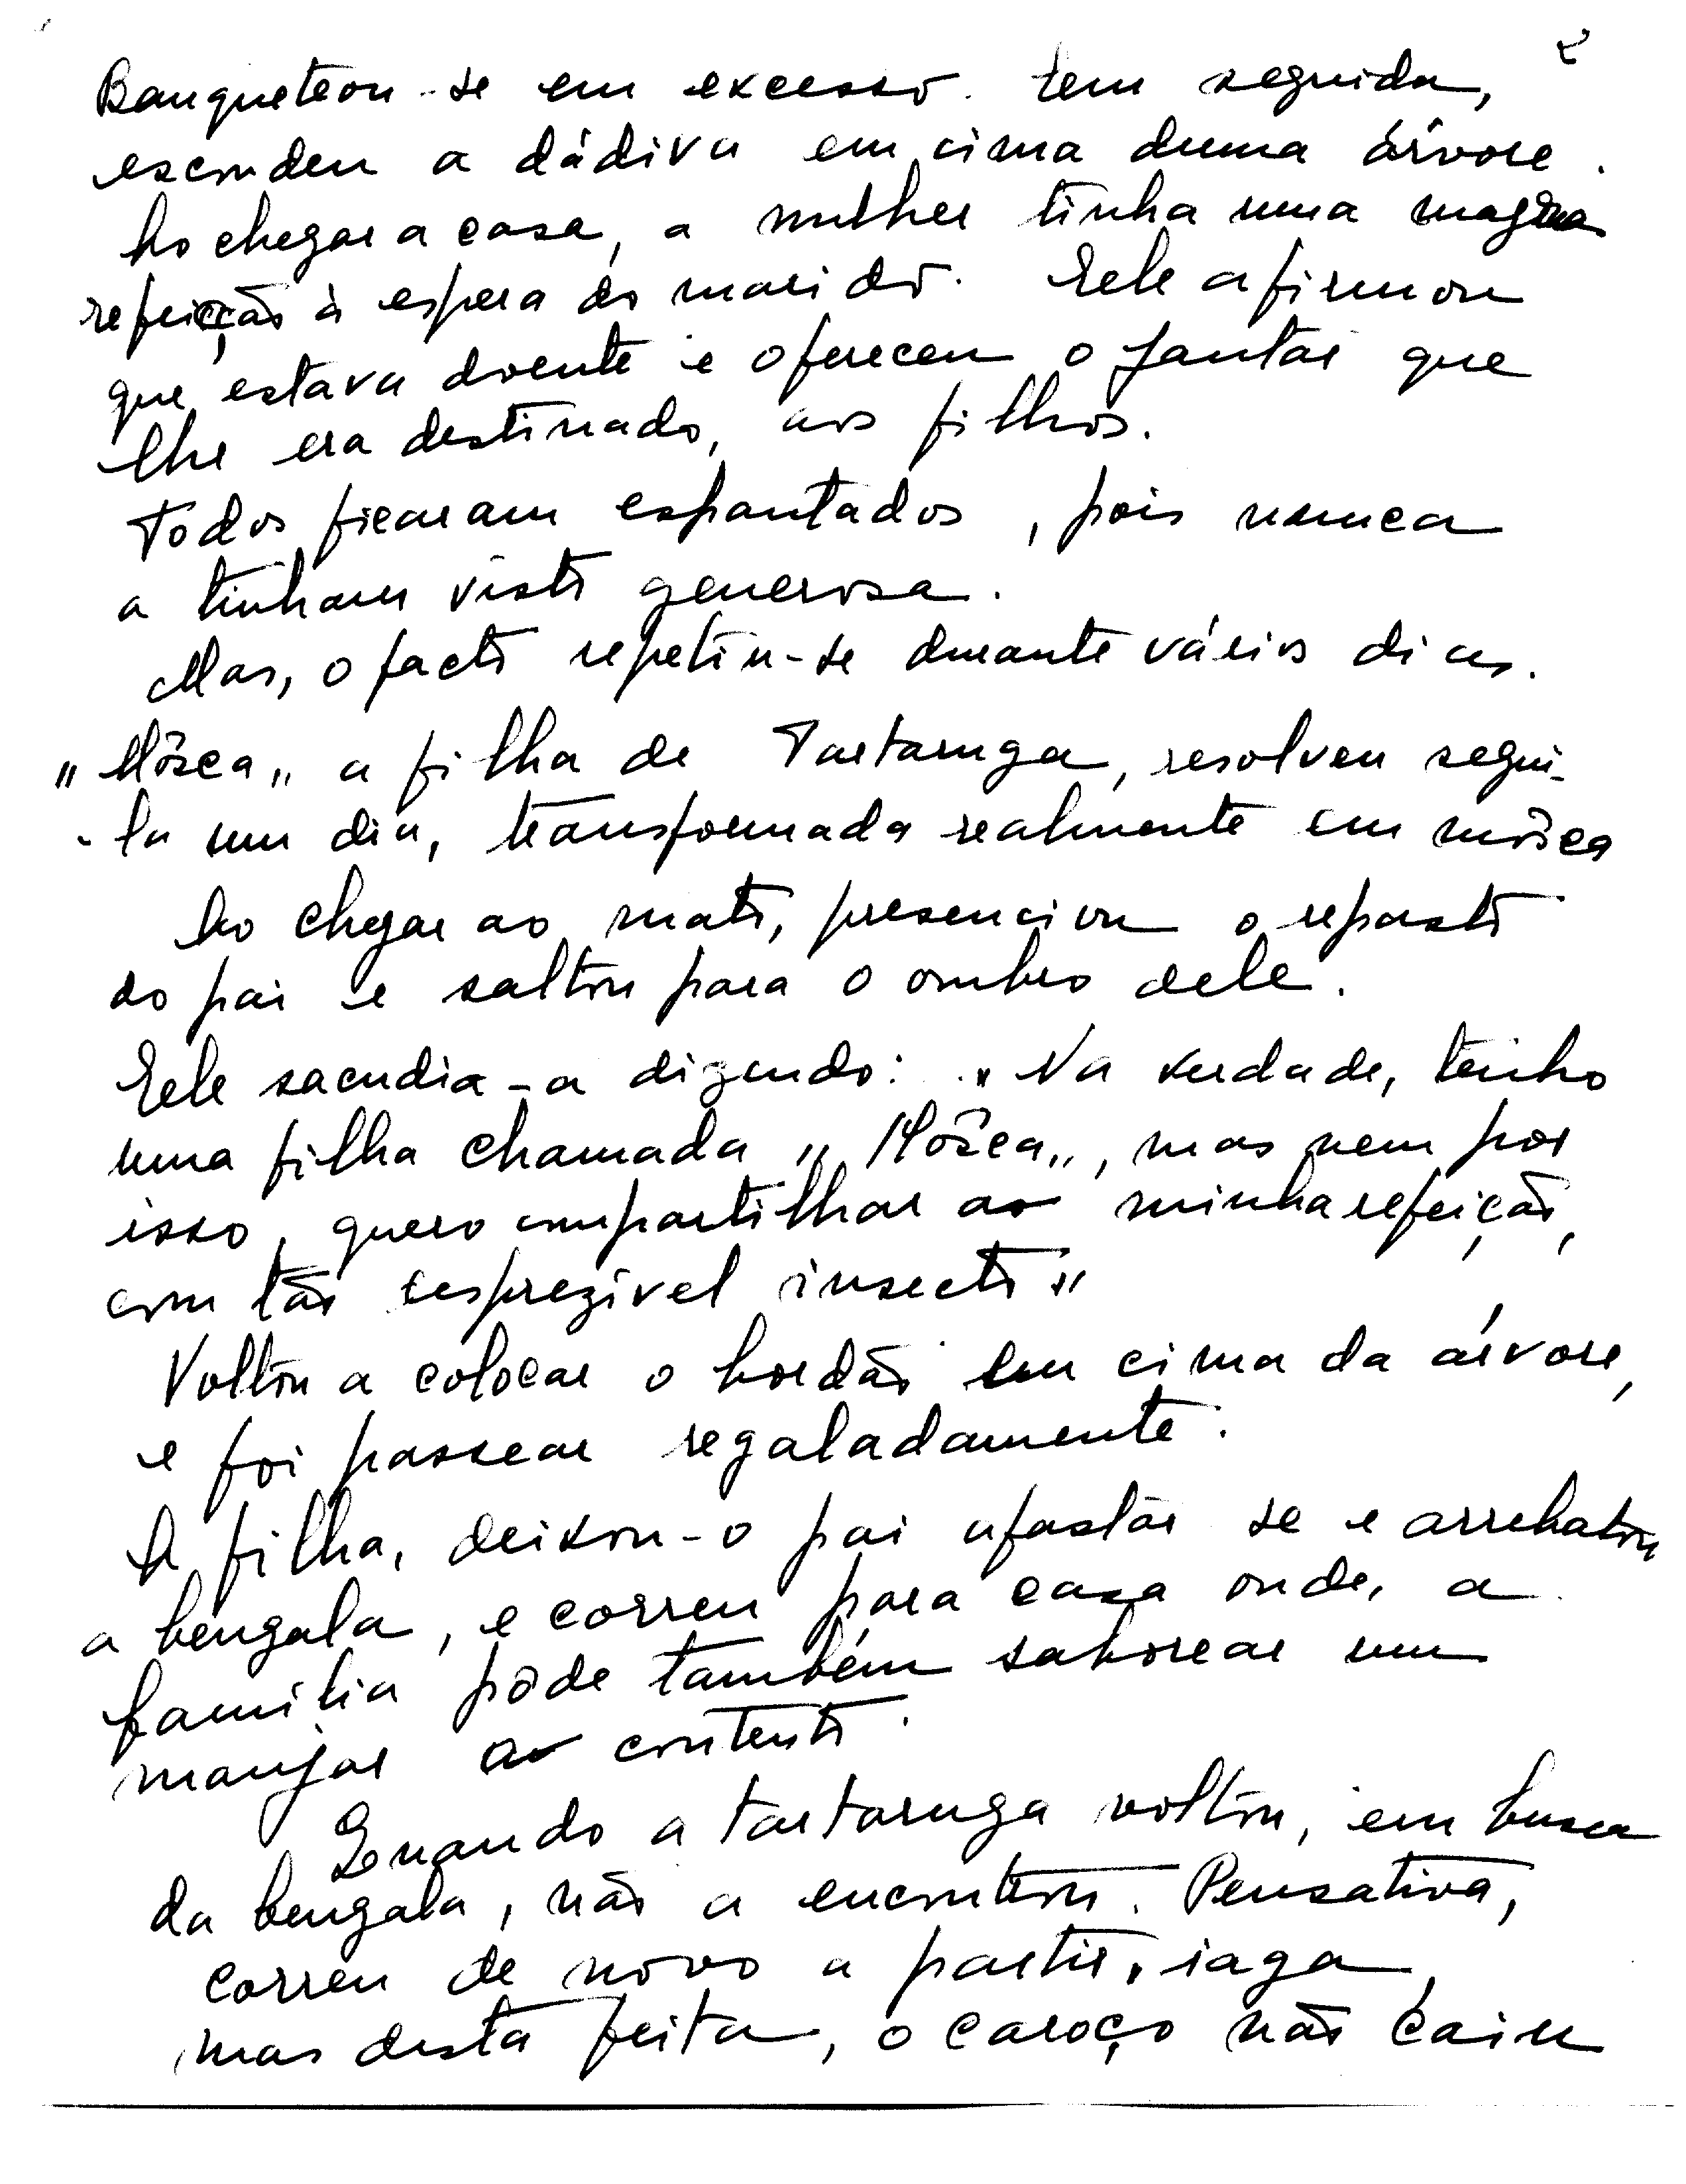 2
Banqueteou-se em excesso. Em seguida,
escondeu a dádiva em cima duma árvore.
Ao chegar a casa, a mulher tinha uma magna
refeição à espera do marido. Ele afirmou
que estava doente e ofereceu o jantar que
lhe era destinado, aos filhos.
Todos ficaram espantados, pois nunca
a tinham visto generosa.
Mas, o facto repetiu-se durante vários dias.
"Môsca" a filha de Tartaruga, resolveu segui-
-la um dia, transformada realmente em môsca
Ao chegar ao mato, presenciou o repasto
do pai e saltou para o ombro dele.
Ele sacudia-a dizendo: "Na verdade, tenho
uma filha chamada "Môsca", mas nem por
isso, quero compartilhar a minha refeição,
com tão desprezível insecto"
Voltou a colocar o bordão em cima da árvore,
e foi passear regaladamente.
A filha, deixou-o pai afastar se e arrebatou
a bengala, e correu para casa onde, a
família pôde também saborear um
manjar a contento.
Quando a tartaruga voltou, em busca
da bengala, não a encontrou. Pensativa,
correu de novo a partir, iaga,
mas desta feita, o caroço não caiu